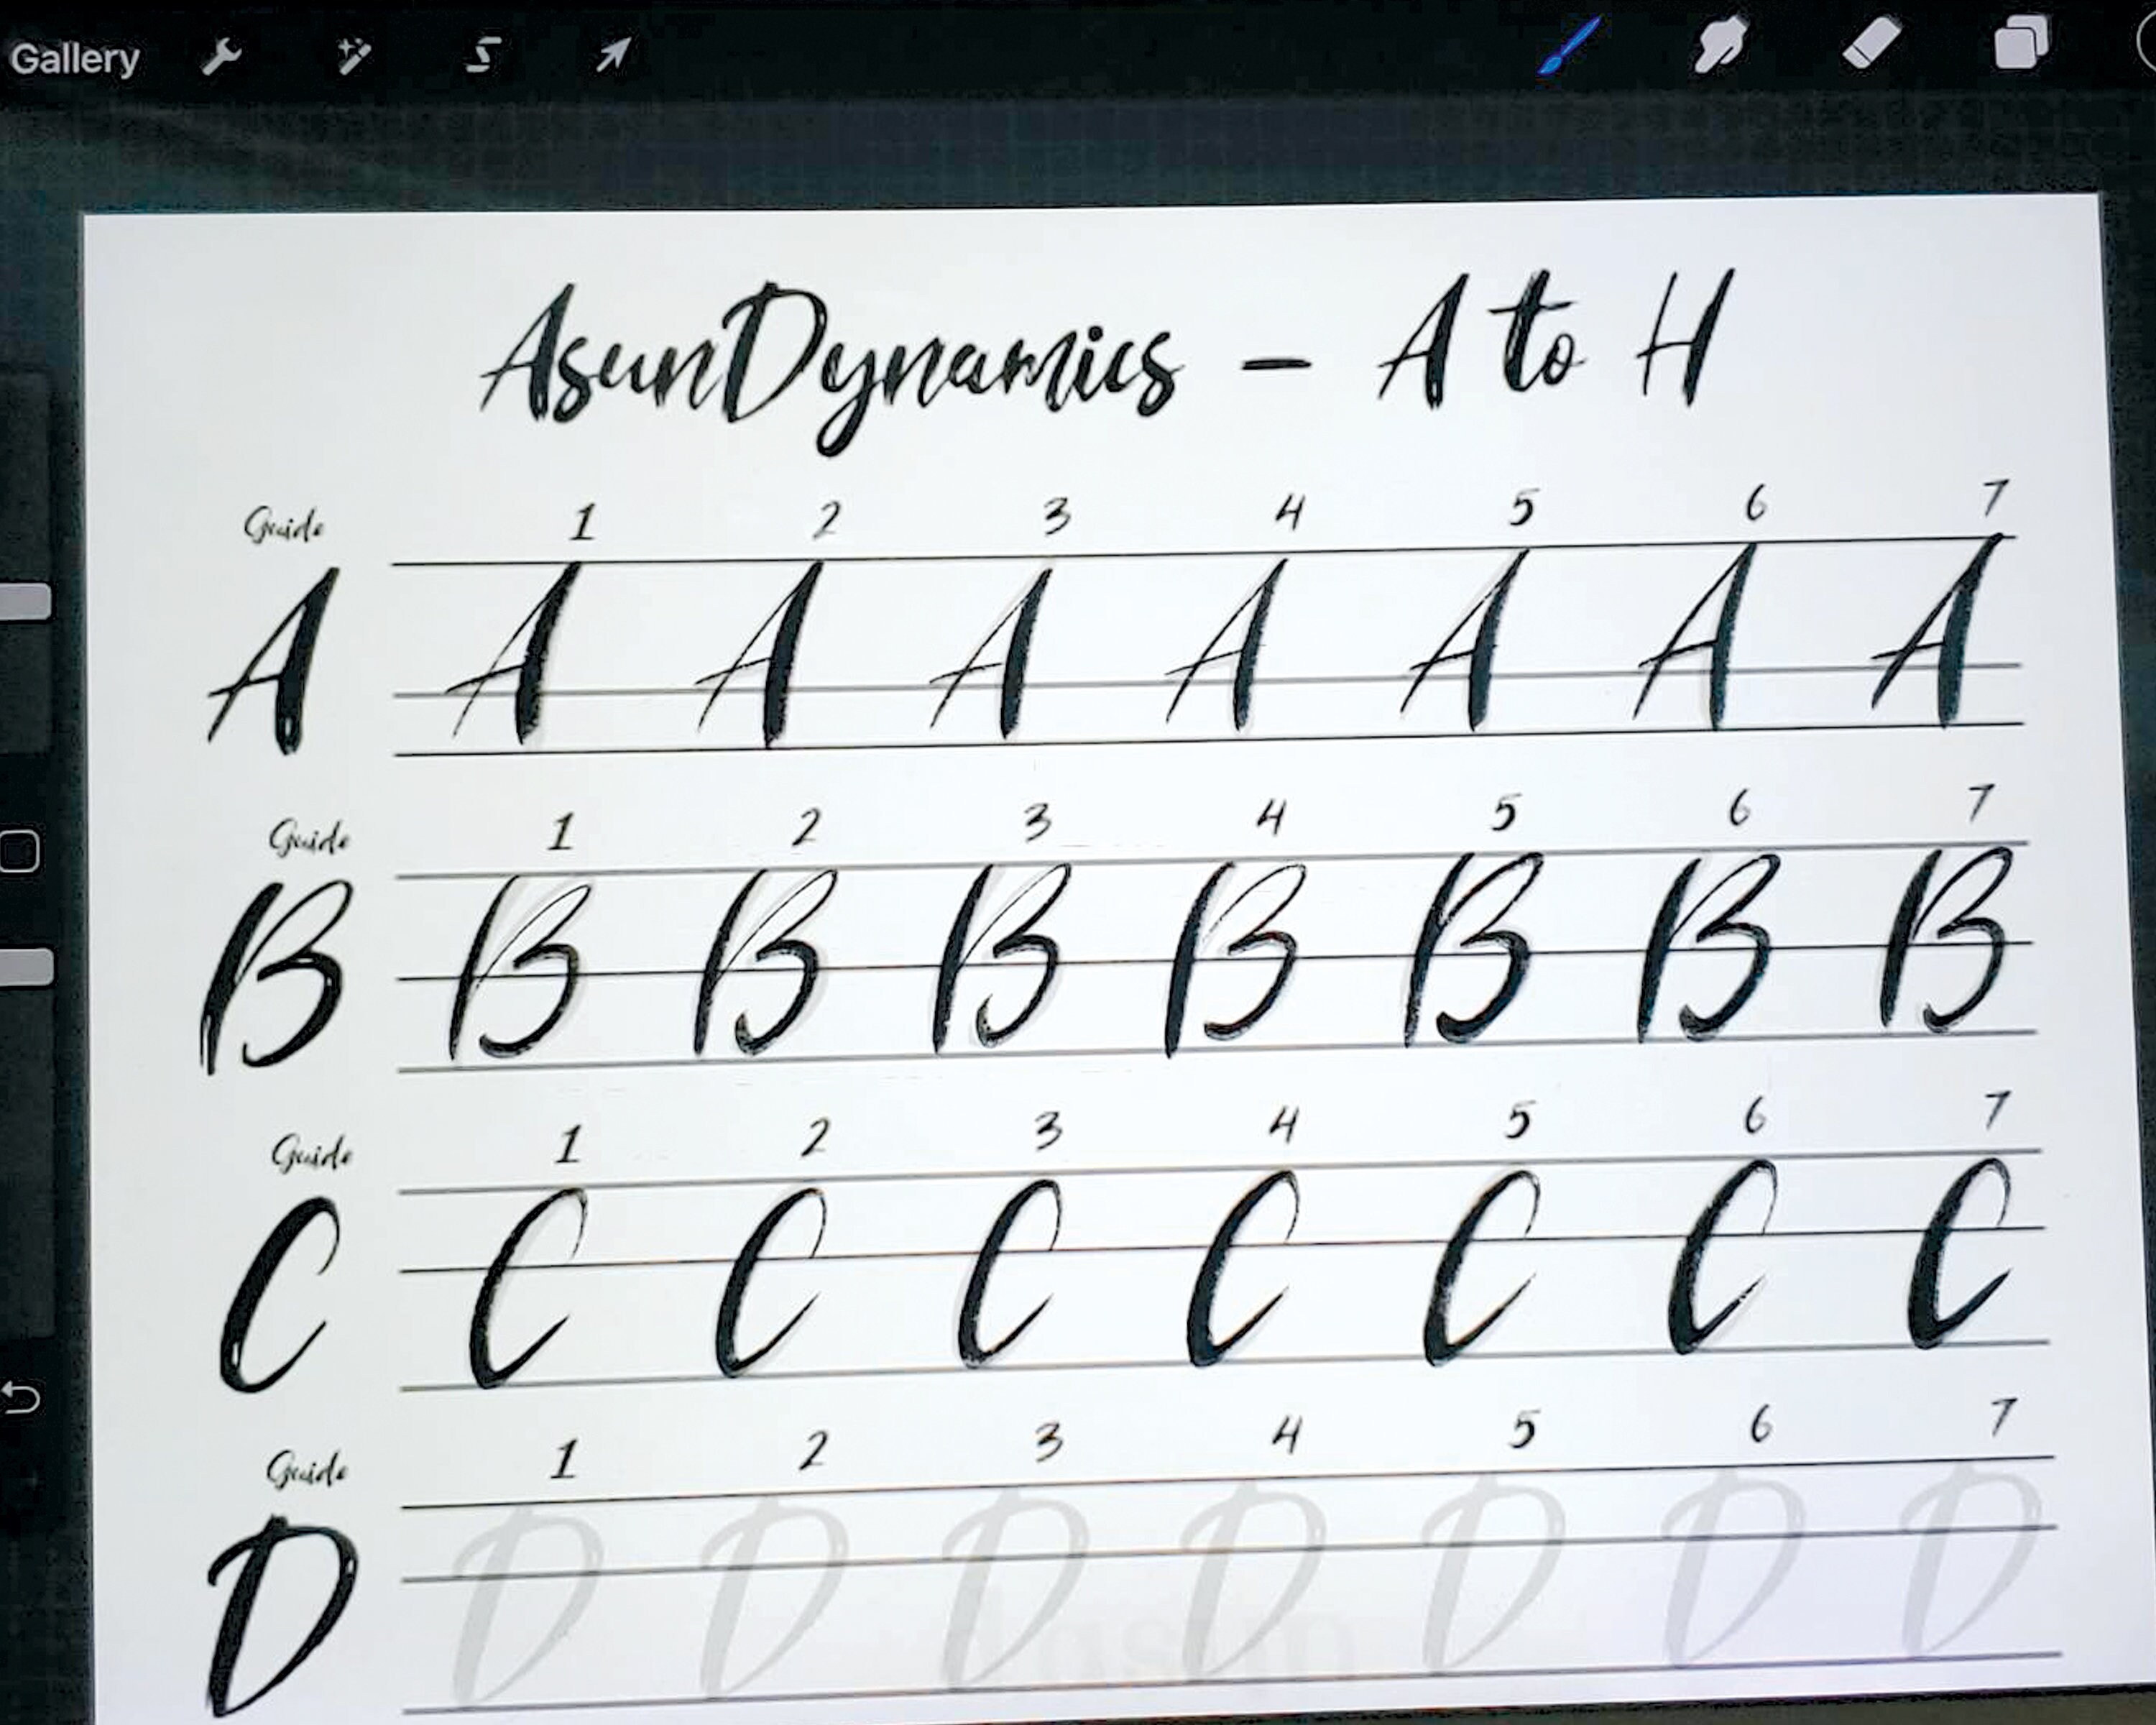 Gallery
AsunDynamics – A to H
Guide 1 2 3 4 5 6 7
A A A A A A A A
Guide 1 2 3 4 5 6 7
B B B B B B B B
Guide 1 2 3 4 5 6 7
C C C C C C C C
Guide 1 2 3 4 5 6 7
D D D D D D D D